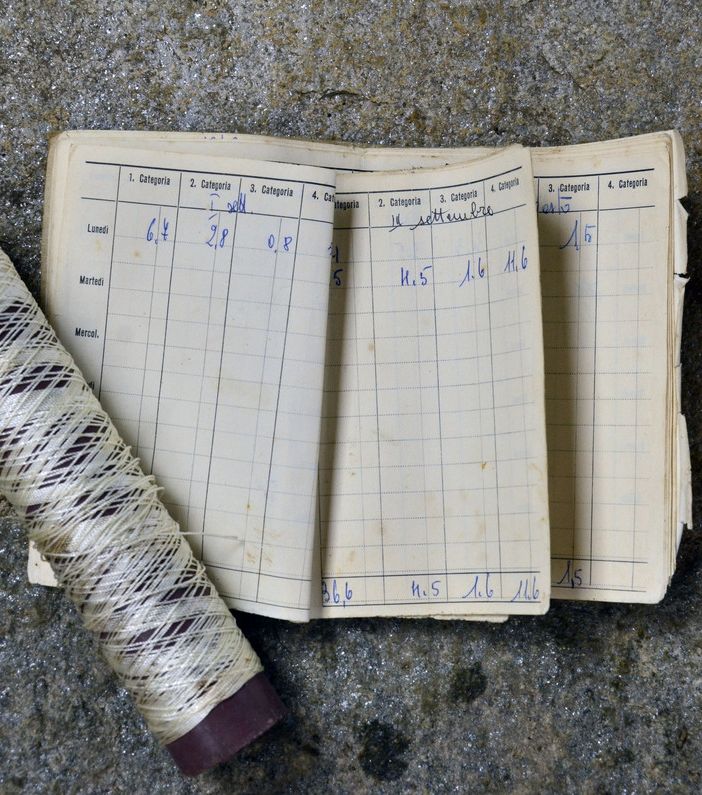 1. Categoria 2. Categoria 3. Categoria
I sett.
Lunedi 6,7 2,8 0,8
Martedi
Mercol.
2. Categoria 3. Categoria 4. Categoria
settembre
4.5 1.6 11.6
36,6 4.5 1.6 11.6
3. Categoria 4. Categoria
1,5
1,5